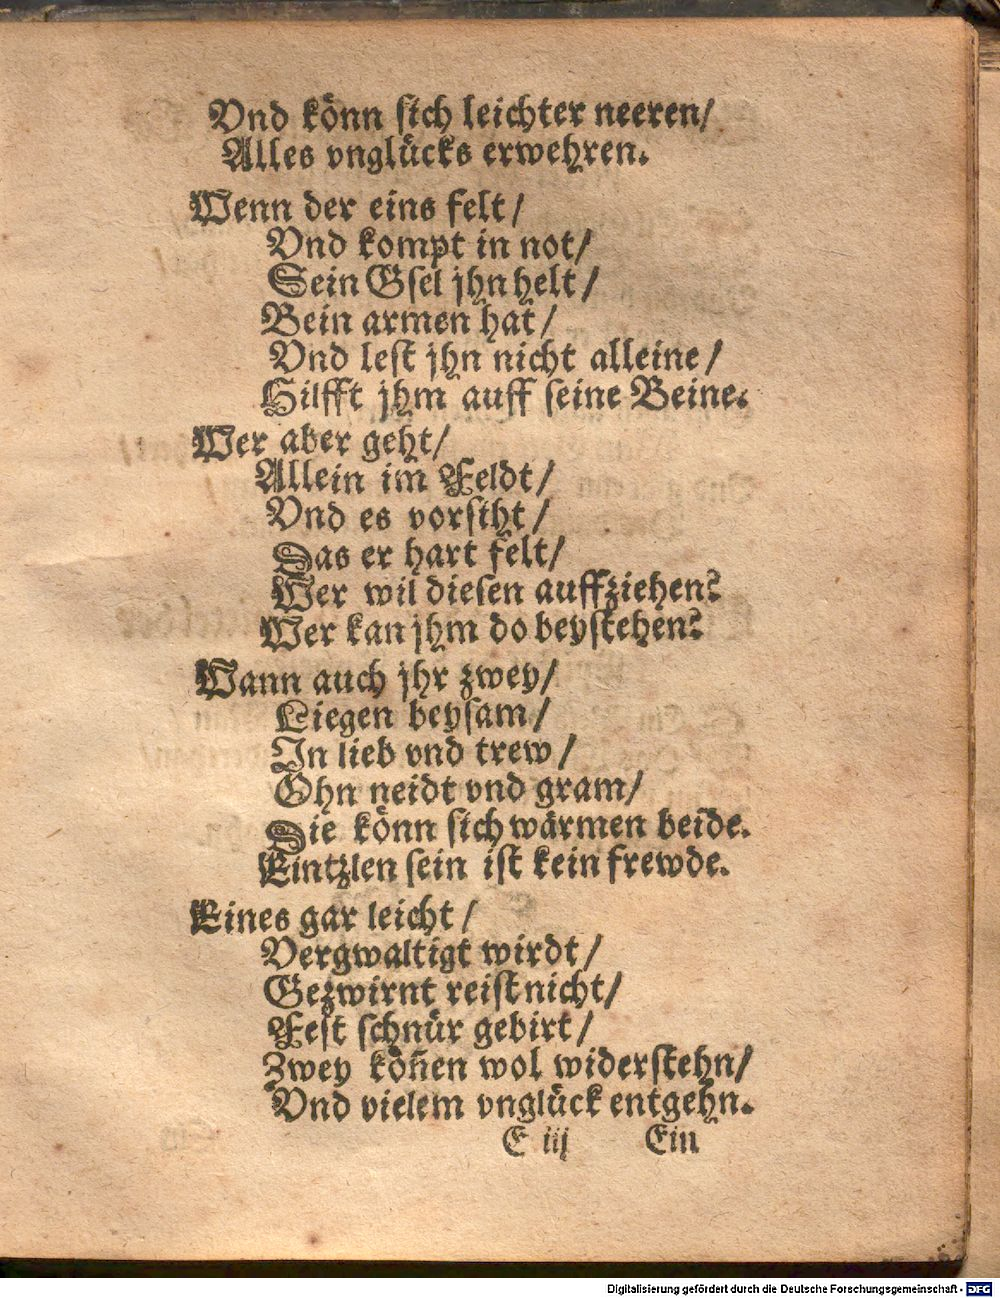 Vnd könn ſich leichter neeren/
Alles vnglücks erwehren.
Wenn der eins felt/
Vnd kompt in not/
Sein Gſel jhn helt/
Bein armen hat/
Vnd leſt jhn nicht alleine/
Hilfft jhm auff ſeine Beine.
Wer aber geht/
Allein im Feldt/
Vnd es vorſiht/
Das er hart felt/
Wer wil dieſen auffziehen?
Wer kan jhm do beyſtehen?
Wann auch jhr zwey/
Liegen beyſam/
In lieb vnd trew/
Ohn neidt vnd gram/
Die könn ſich wärmen beide.
Eintzlen ſein iſt kein frewde.
Eines gar leicht/
Vergwaltigt wirdt/
Gezwirnt reiſt nicht/
Feſt ſchnür gebirt/
Zwey kön̄en wol widerſtehn/
Vnd vielem vnglück entgehn.
E iij Ein
Digitalisierung gefördert durch die Deutsche Forschungsgemeinschaft - DFG